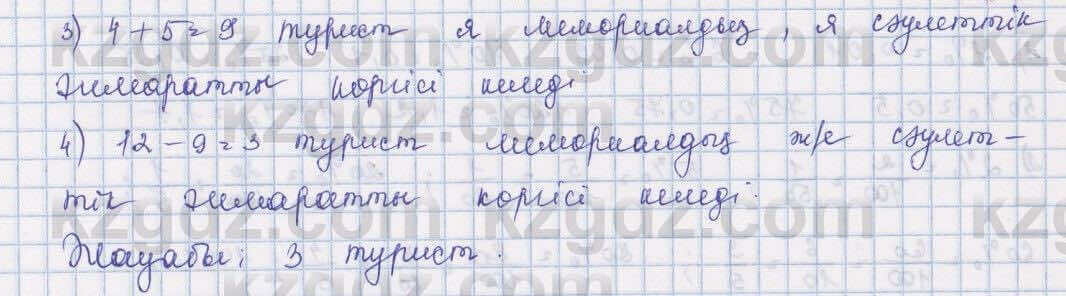 3) 4 + 5 = 9 турист я мемориалдық, я сәулеттік
ғимаратты көргісі келеді
4) 12 - 9 = 3 турист мемориалдық ж/е сәулет-
тік ғимаратты көргісі келеді.
Жауабы: 3 турист.